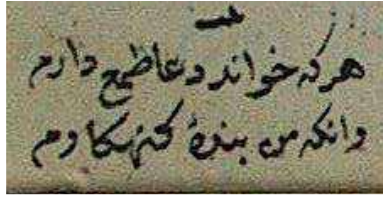 هرکه خواند دعا طمع دارم
وانکه من بندهٔ کنهکارم